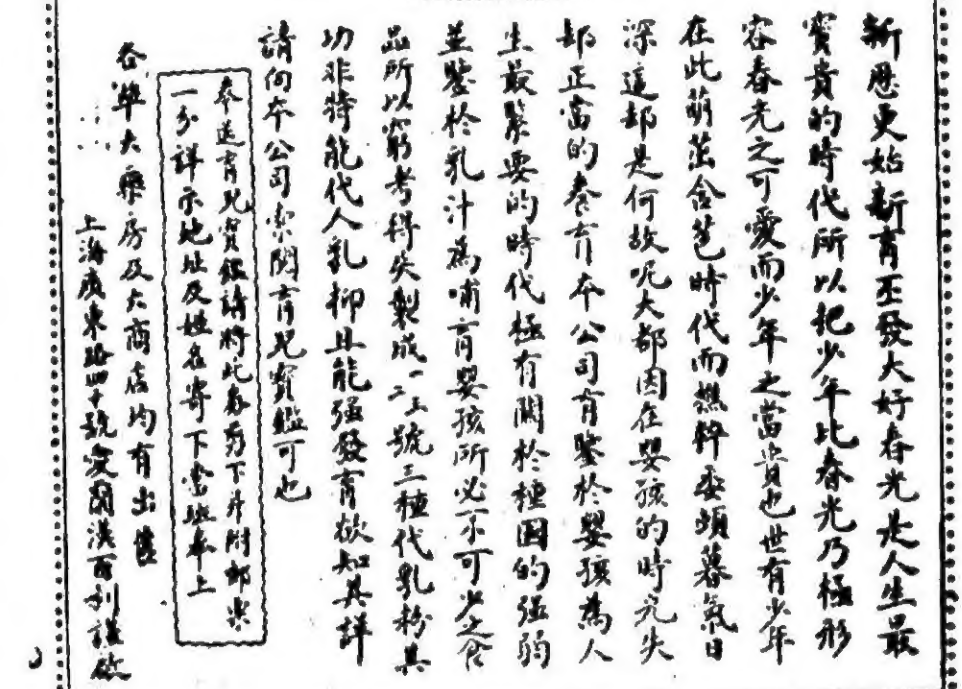 新歷更始新育丕發大好春光是人生最
寶貴的時代所以把少年比春光乃極形
容春光之可愛而少年之當貴也世有少年
在此萌茁含苞時代而憔悴委頓暮氣日
深這却是何故呢大都因在嬰孩的時光失
却正當的養育本公司有鑒於嬰孩為人
生最緊要的時代極有關於種因的强弱
並鑒於乳汁為哺育嬰孩所必不可少之食
品所以窮考得失製成一二三號三種代乳粉其
功非特能代人乳抑且能强發育欲知其詳
請向本公司索閱育兒寶鑑可也
奉送育兒寶鑑請將此券剪下并附郵票
一分詳示地址及姓名寄下當班奉上
各準大藥房及大商店均有出售
上海廣東路四十號愛蘭漢百利謹啟